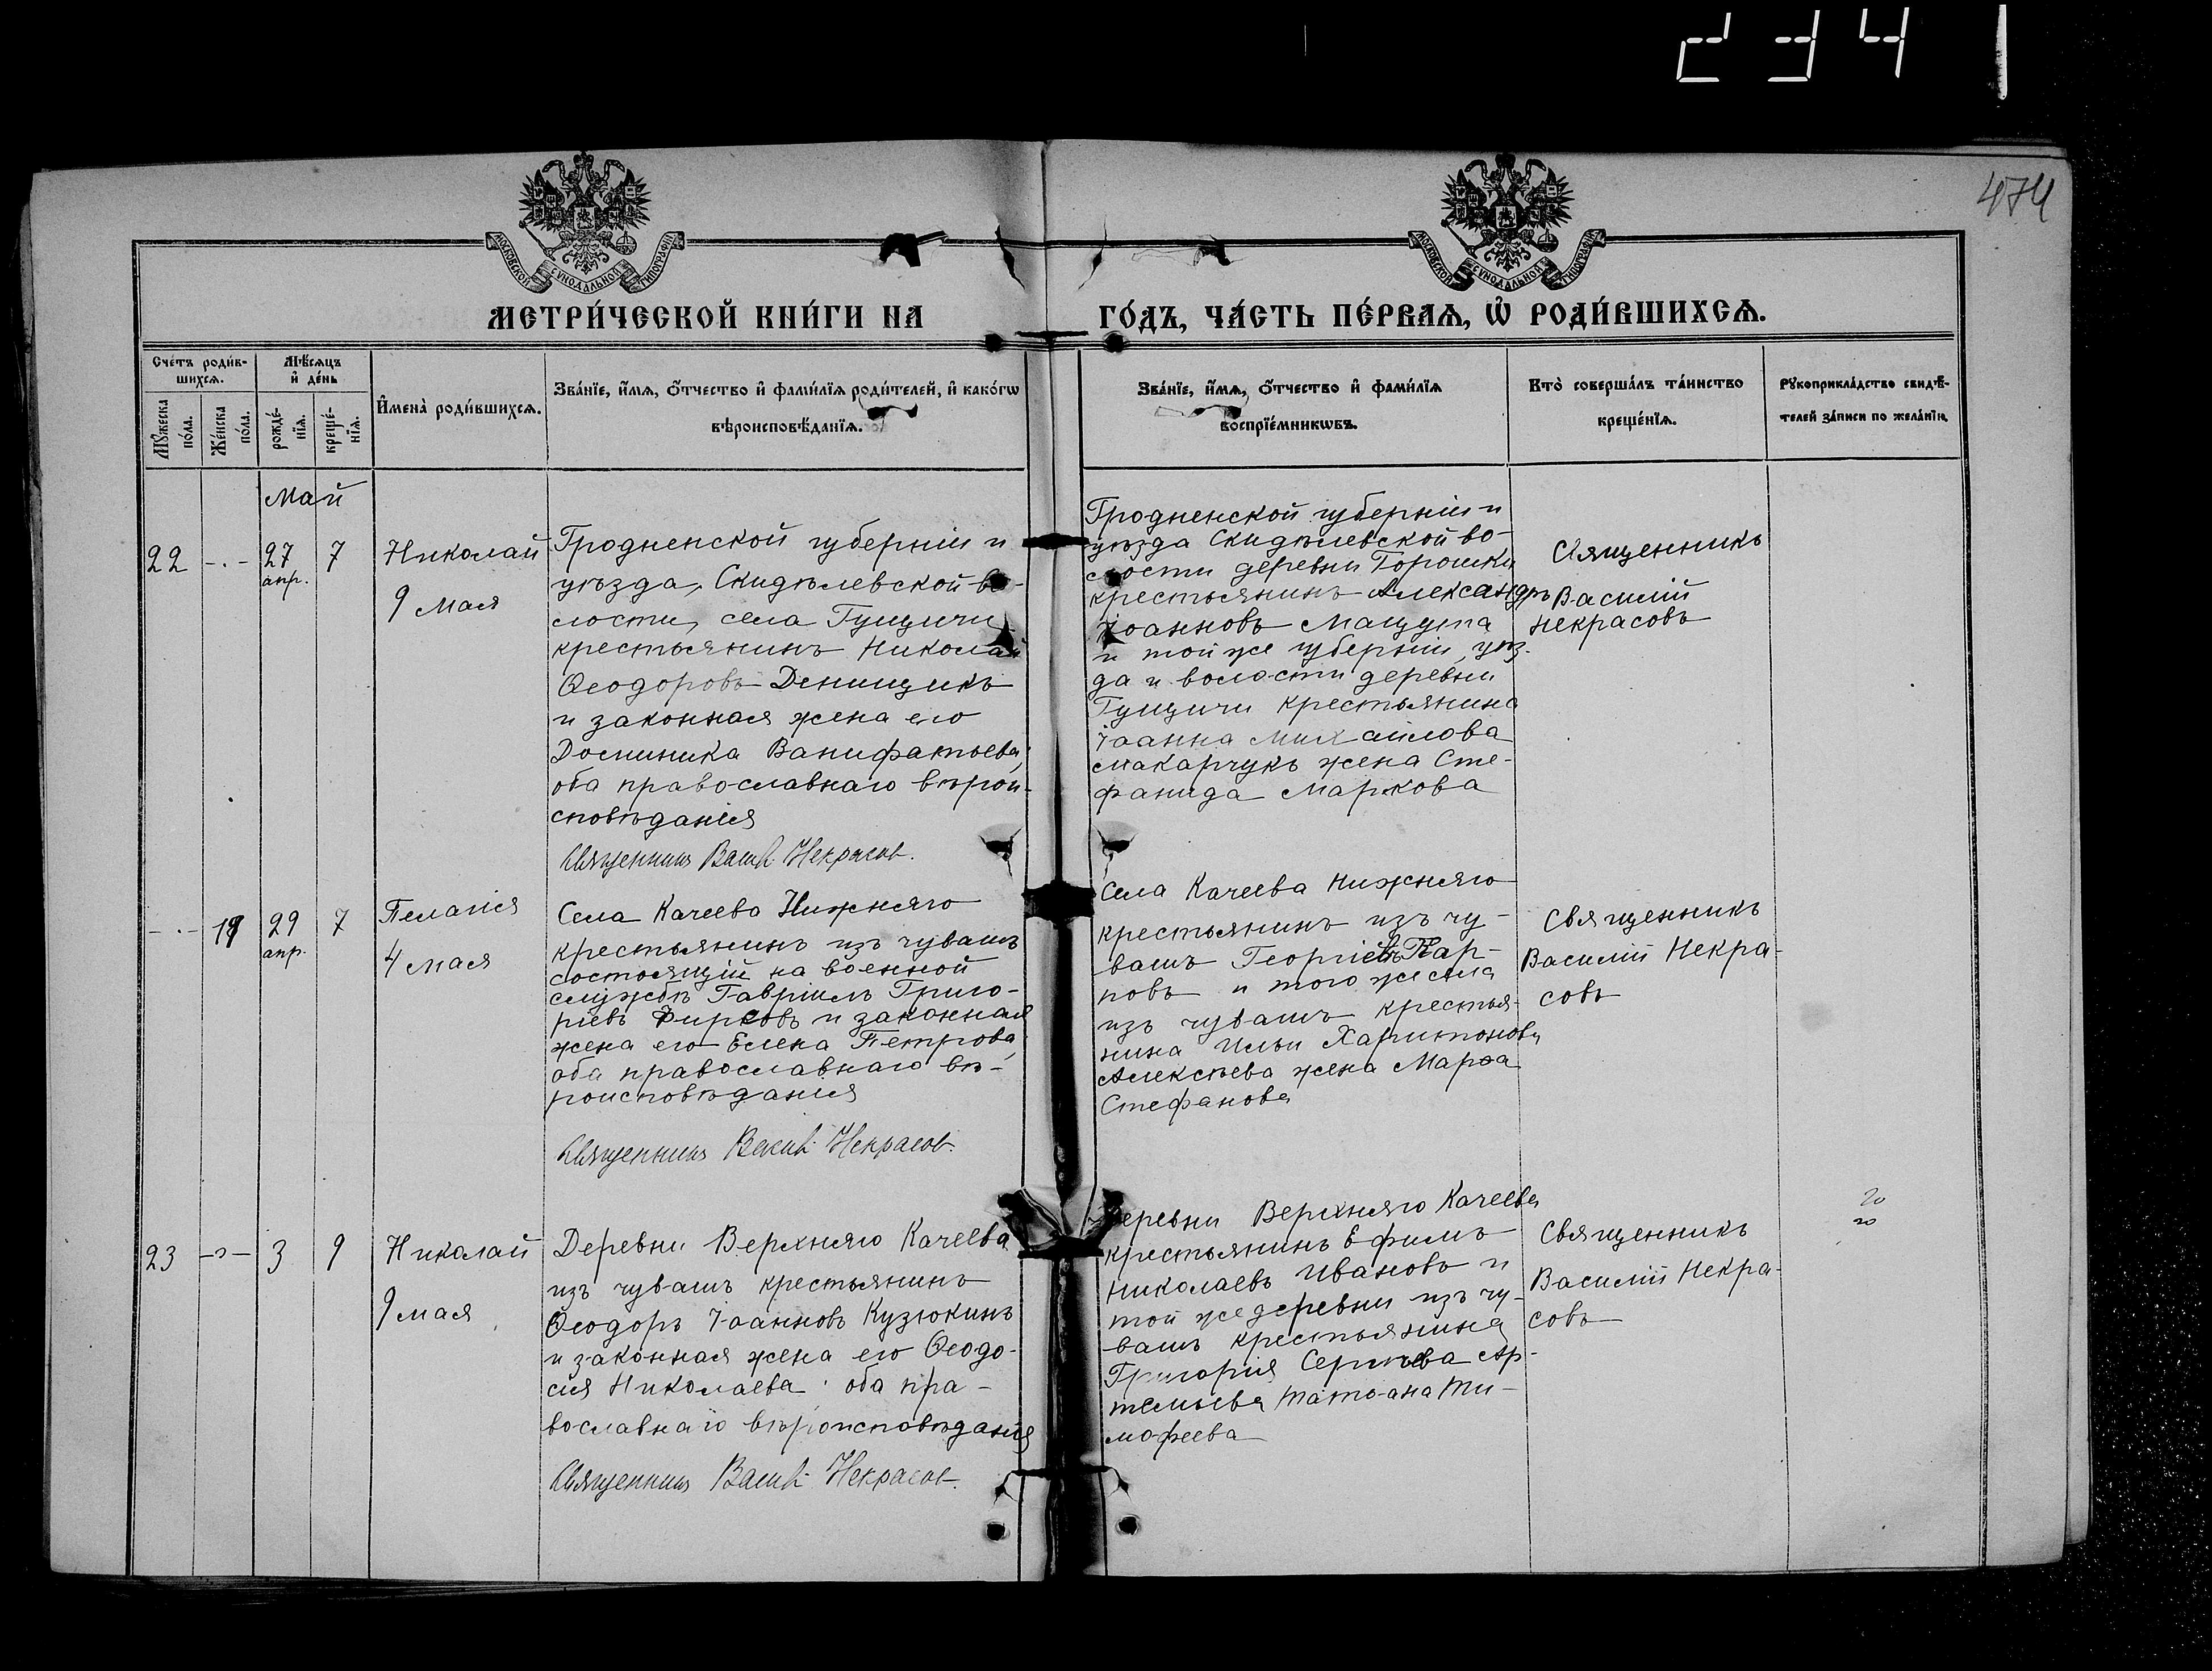 2341
474
МОСКОВСКОЙ СУНОДАЛЬНОЙ ТИПОГРАФІИ
МОСКОВСКОЙ СУНОДАЛЬНОЙ ТИПОГРАФІИ
МЕТРИ́ЧЕСКОЙ КНИ́ГИ НА ГО́ДЪ, ЧА́СТЬ ПЕ́РВАѦ, Ѡ҆ РОДИ́ВШИХСѦ.
Сче́тъ роди́в-
шихсѧ.
Мꙋ́жеска
по́ла.
Же́нска
по́ла.
Мѣ́сѧцъ
и҆ де́нь
рожде́-
нїѧ.
креще́-
нїѧ.
И҆мена̀ роди́вшихсѧ.
Зва́нїе, и҆́мѧ, ѻ҆́тчество и҆ фами́лїѧ роди́телей, и҆ како́гѡ
вѣроисповѣ́данїѧ.
Зва́нїе, и҆́мѧ, ѻ҆́тчество и҆ фами́лїѧ
воспрїе́мникѡвъ.
Кто̀ соверша́лъ та́инство
креще́нїѧ.
Рꙋкоприкла́дство свидѣ́-
телей за́писи по жела́нїю.
Май
22 -.- 27 7
апр.
Николай
9 мая
Гродненской губерніи и
уѣзда, Скидѣлевской во-
лости, села Гущичи
крестьянинъ Николай
Ѳеодоровъ Денищикъ
и законная жена его
Доминика Ванифатьева,
оба православнаго вѣрои-
сповѣданія
Священникъ Васил Некрасов.
Гродненской губерніи и
уѣзда Скидѣлевской во-
лости деревни Горошки
крестьянинъ Александръ
Іоанновъ Мацута
и той же губерніи, уѣз-
да и волости деревни
Гущичи крестьянина
Іоанна Михайлова
Макарчукъ жена Сте-
фанида Маркова
Священникъ
Василій
Некрасовъ
-.- 19 29 7
апр.
Пелагія
4 мая
Села Качеева Нижняго
крестьянинъ изъ чувашъ
состоящій на военной
службѣ Гавріилъ Григо-
ріевъ Фирсовъ и законная
жена его Елена Петрова,
оба православнаго вѣ-
роисповѣданія
Священникъ Васил Некрасов.
Села Качеева Нижняго
крестьянинъ изъ чу-
вашъ Георгіевъ Кар-
повъ и того же села
изъ чувашъ крестья-
нина Ильи Харитонова
Алексѣева жена Марѳа
Стефанова
Священникъ
Василій Некра-
совъ
23 -"- 3 9
Николай
9 мая
Деревни Верхняго Качеева
изъ чувашъ крестьянинъ
Ѳеодоръ Іоанновъ Кузюкинъ
и законная жена его Ѳеодо-
сія Николаева оба пра-
вославнаго вѣроисповѣданія
Священникъ Васил Некрасов.
Деревни Верхняго Качеева
крестьянинъ Ефимъ
Николаевъ Ивановъ и
той же деревни изъ чу-
вашъ крестьянина
Григорія Сергѣева Ар-
темьева Татіана Ти-
мофеева
Священникъ
Василій Некра-
совъ